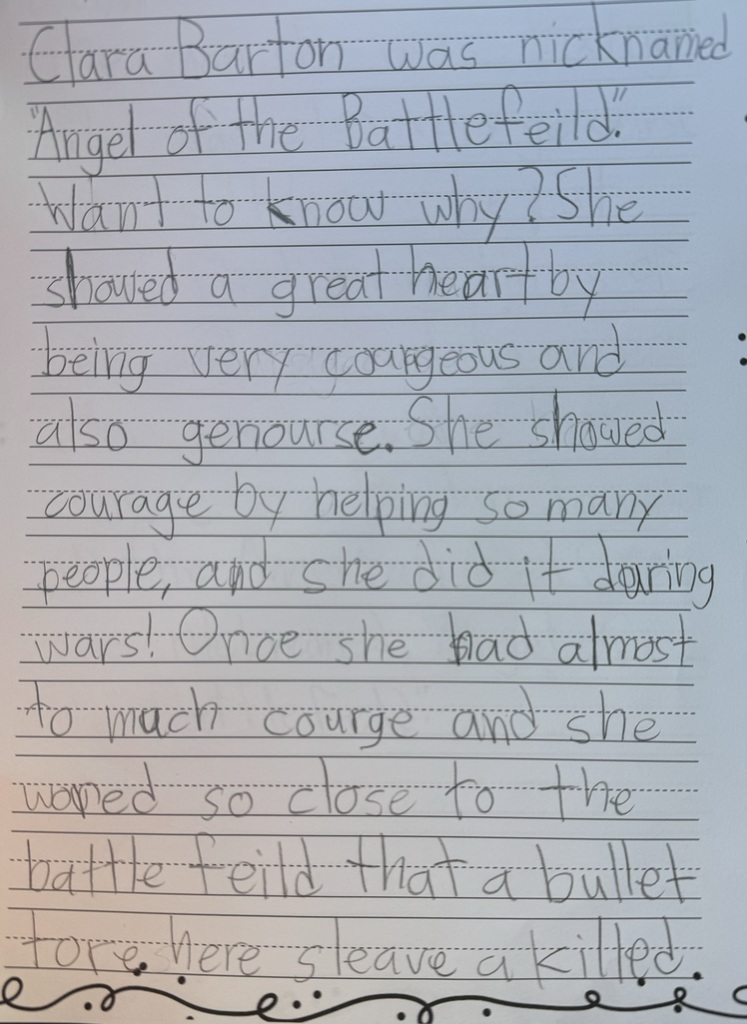 Clara Barton was nicknamed
"Angel of the Battlefeild."
Want to know why? She
showed a great heart by
being very courgeous and
also genourse. She showed
courage by helping so many
people, and she did it during
wars! Once she had almost
to much courge and she
so close to the
battle feild that a bullet
tore here sleave a killed.